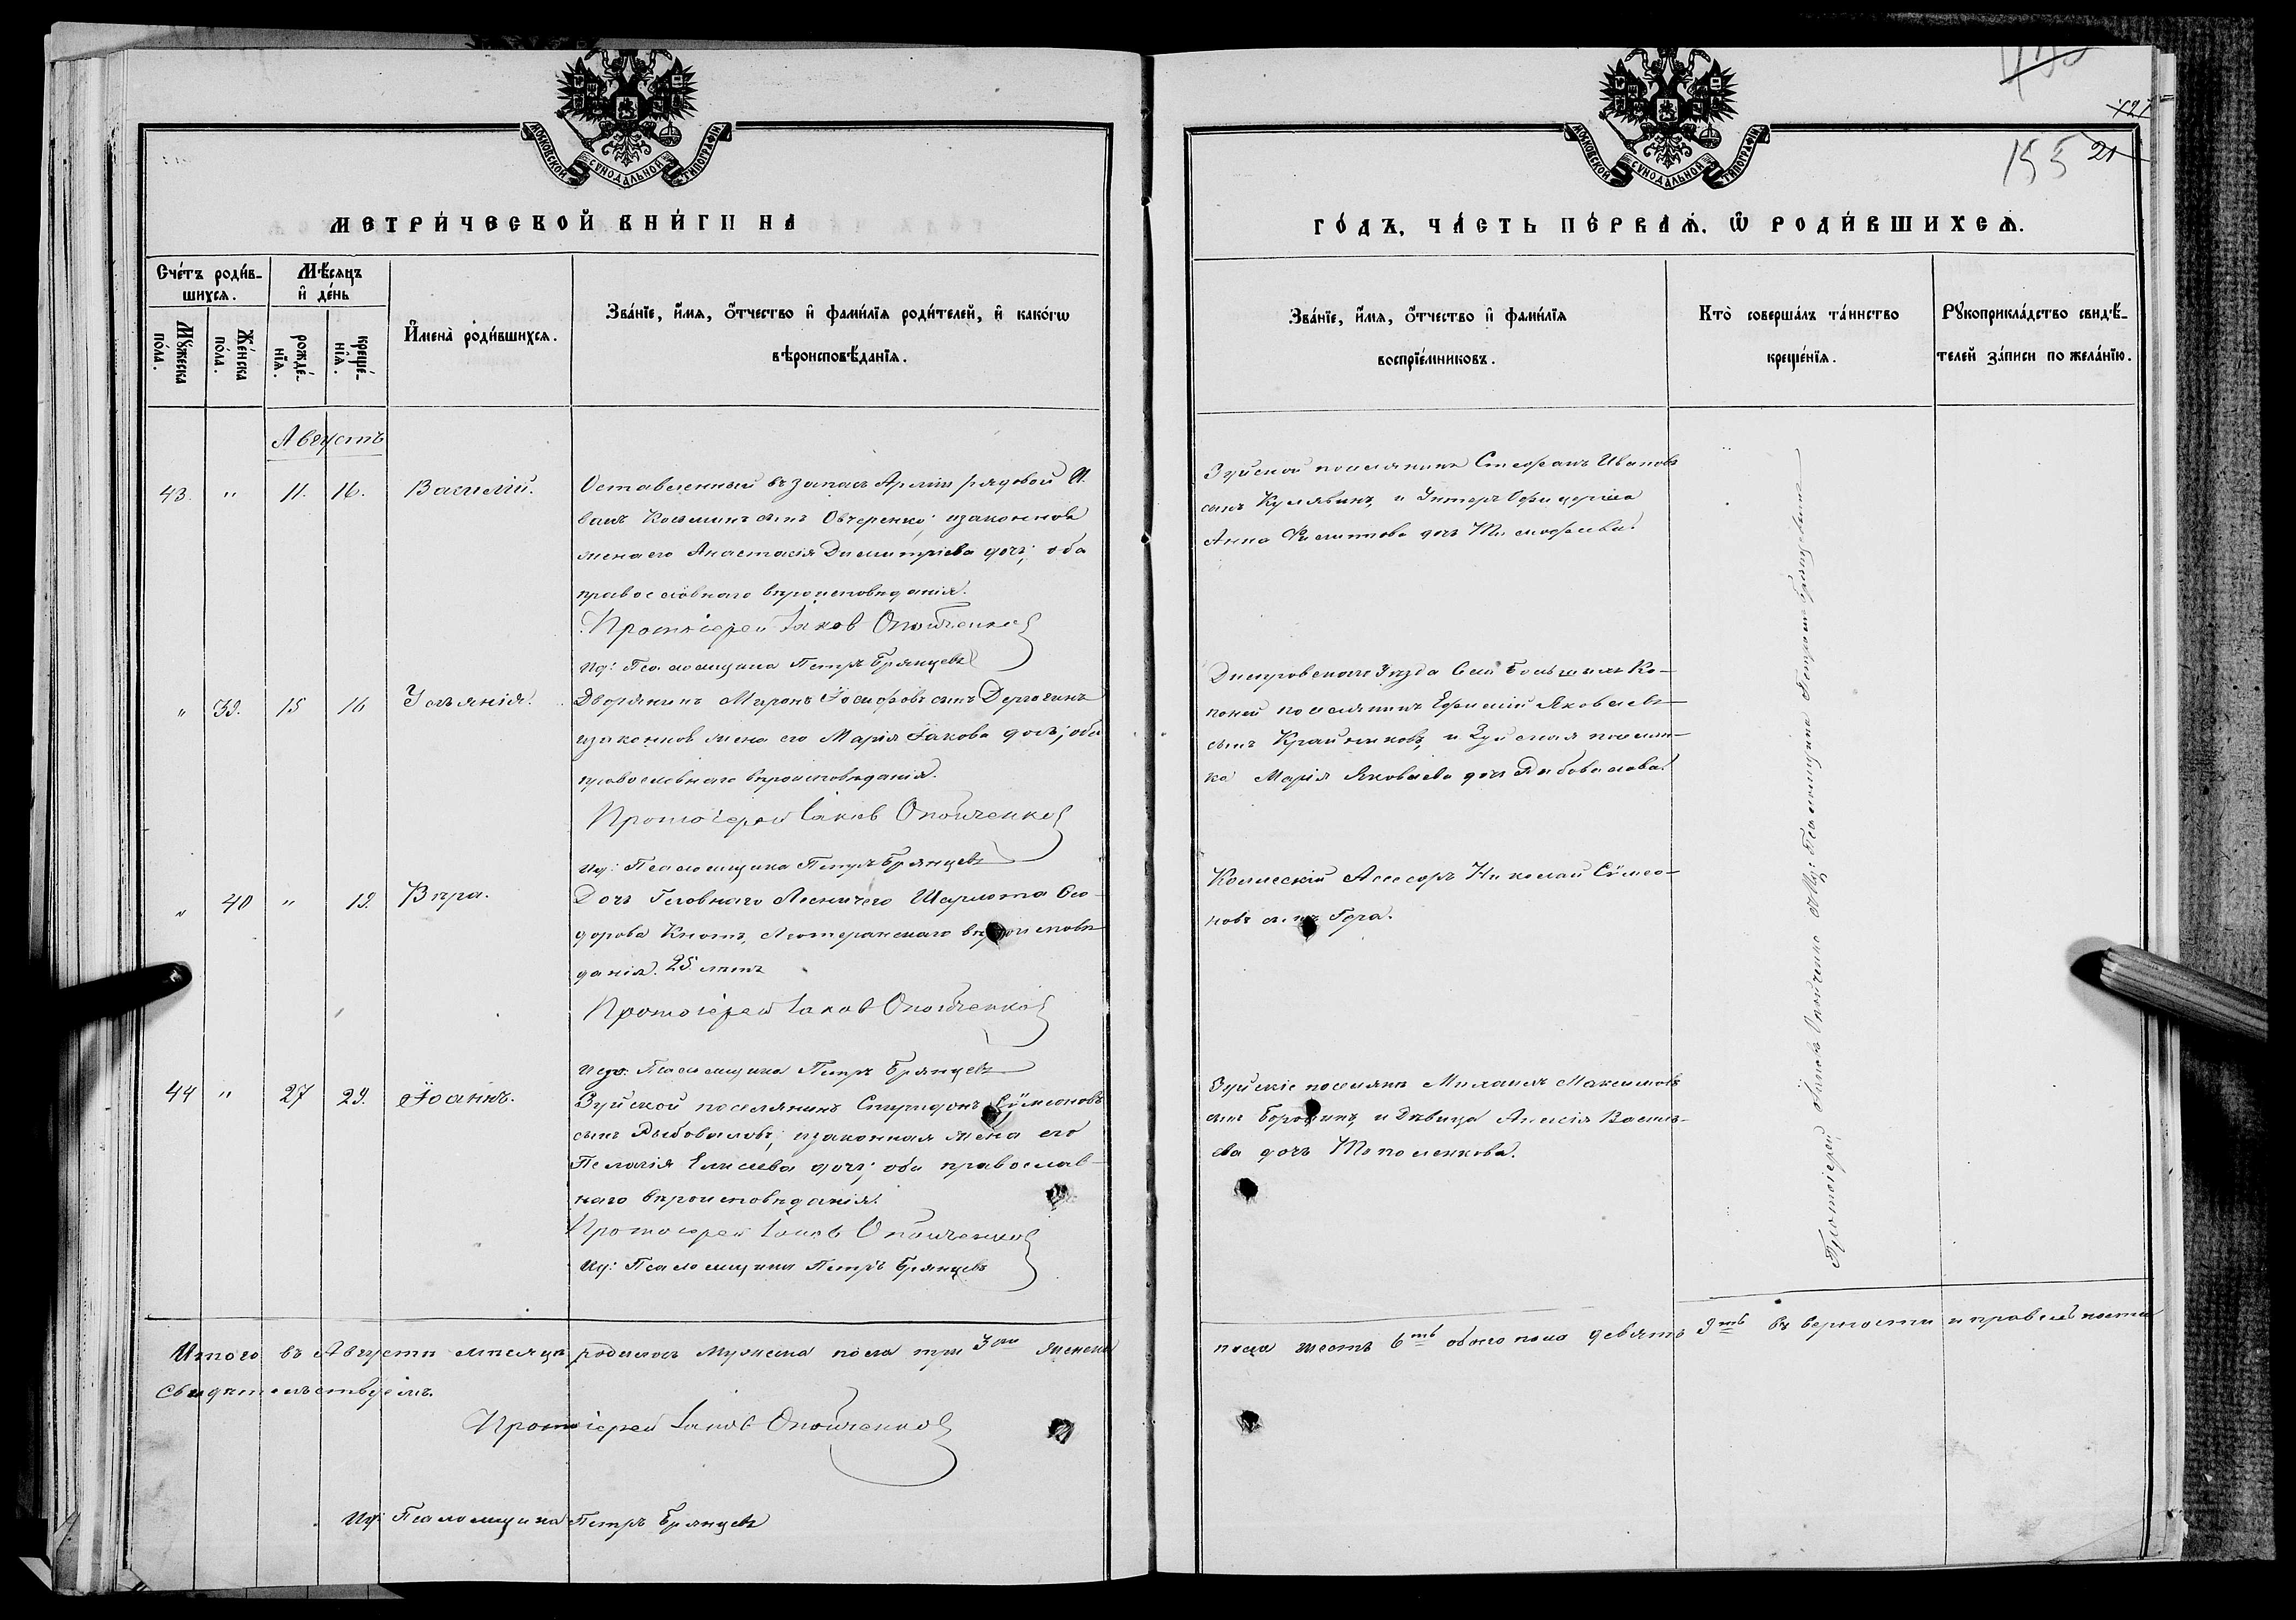 МОСКОВСКОЙ СѴНОДАЛЬНОЙ ТИПОГРАФІИ.
МЕТРИ́ЧЕСКОЙ КНИ́ГИ НА
Сче́тъ роди́в-
шихсѧ.
Мѣ́сѧцъ
и҆ де́нь
Мꙋ́жеска
по́ла.
Же́нска
по́ла.
рожде́-
нїѧ.
креще́-
нїѧ.
И҆мена̀ роди́вшихсѧ.
Зва́нїе, и҆́мѧ, ѻ҆́тчество и҆ фами́лїѧ роди́телей, и҆ како́гѡ
вѣроисповѣ́данїѧ.
Августъ
43. " 11. 16. Василій.
Оставленный въ запасъ Арміи рядовой И-
ванъ Козминъ сынъ Овчеренко; изаконная
жена его Анастасія Димитріева дочь; оба
православнаго вѣроисповѣданія.
Протоіерей Іаковъ Опойченко
Ид: Псаломщика Петръ Брянцевъ
" 39. 15 16 Іуліянія.
Дворянинъ Миронъ Іосифовъ сынъ
изаконная жена его Марія Іакова дочь; оба
православнаго вѣроисповѣданія.
Протоіерей Іаковъ Опойченко
Ид: Псаломщика Петръ Брянцевъ
" 40 " 19. Вѣра.
Дочь Лѣсничего Шарлота Өео-
дорова Кнотъ, Лютеранскаго вѣроисповѣ-
данія. 25 лѣтъ
Протоіерей Іаковъ Опойченко
Исд: Псаломщика Петръ Брянцевъ
44 " 27 29. Іоаннъ.
Зуйской поселянинъ Спиридонъ Сѵмеоновъ
сынъ Рыбоваловъ; изаконная жена его
Пелагія Елисеева дочь; оба православ-
наго вѣроисповѣданія.
Протоіерей Іаковъ Опойченко
Ид: Псаломщика Петръ Брянцевъ
Итого въ Августѣ мѣсяцѣ родилось мужеска пола три 3ри женска
свидѣтельствуемъ.
Протоіерей Іаковъ Опойченко
Ид: Псаломщика Петръ Брянцевъ
МОСКОВСКОЙ СѴНОДАЛЬНОЙ ТИПОГРАФІИ.
155 21
ГО́ДЪ, ЧА́СТЬ ПЕ́РВАѦ, Ѡ҆ РОДИ́ВШИХСѦ.
Зва́нїе, и҆́мѧ, ѻ҆́тчество и҆ фами́лїѧ
воспрїе́мниковъ.
Кто̀ соверша́лъ та́инство
креще́нїѧ.
Рꙋкоприкла́дство свидѣ́-
телей за́писи по жела́нїю.
Зуйской поселянинъ Стефанъ Ивановъ
сынъ Кулябинъ, и Унтеръ Офицерша
Анна Филиппова дочь Тимофеева.
Днепровскаго Уѣзда Села Большихъ Ко-
паней поселянинъ Ефимій Яковлевъ
сынъ Крайниковъ, и Зуйская поселян-
ка Марія Яковлева дочь Рыбовалова.
Колесскій Асесоръ Николай Сѵмео-
новъ сынъ Гера.
Зуйскіе поселяне Михаилъ Максимовъ
сынъ Бородинъ, и дѣвица Анисія Василь-
ева дочь Тополенкова.
Протоіерей Іаковъ Опойченко Ид: Псаломщика Петромъ Брянцевымъ
пола шесть 6ть обоего пола девять 9ть въ верности и правельности